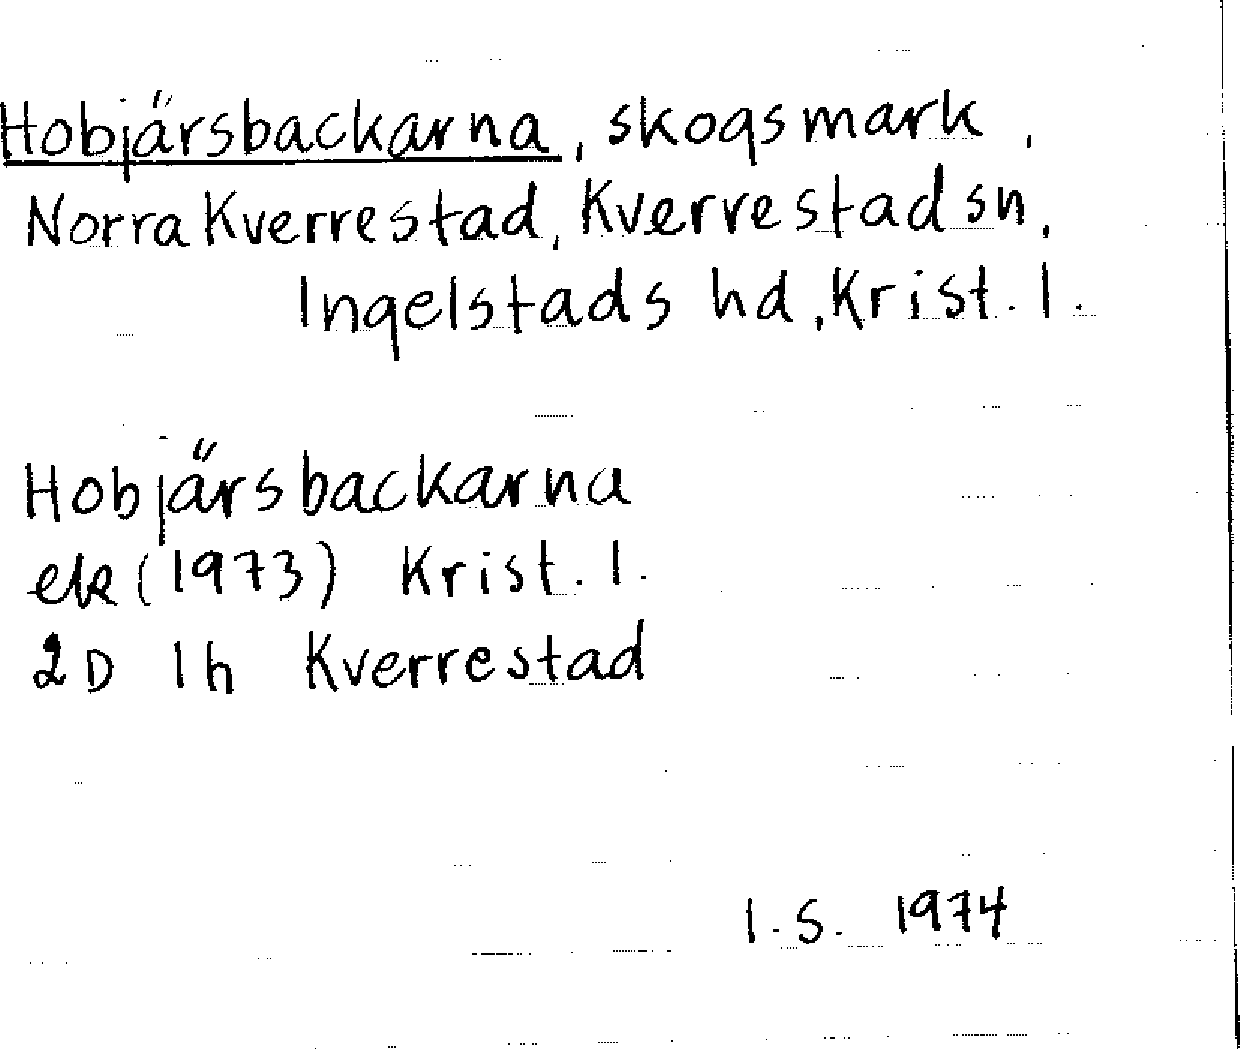 Hobjärsbackarna, skogsmark,
Norra Kverrestad, Kverrestad sn,
Ingelstads hd, Krist. l.
Hobjärsbackarna
ek (1973) Krist. l.
2D 1h Kverrestad
I.S. 1974